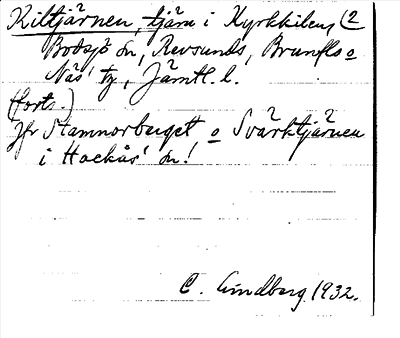 Kiltjärnen, tjärn i Kyrkkilen, (2
Bodsjö sn, Revsunds, Brunflo o
Näs' tg, Jämtl. l.
(forts.)
Jfr Stamnorberget o Svärktjärnen
i Hackås' sn!
C. Lindberg 1932.